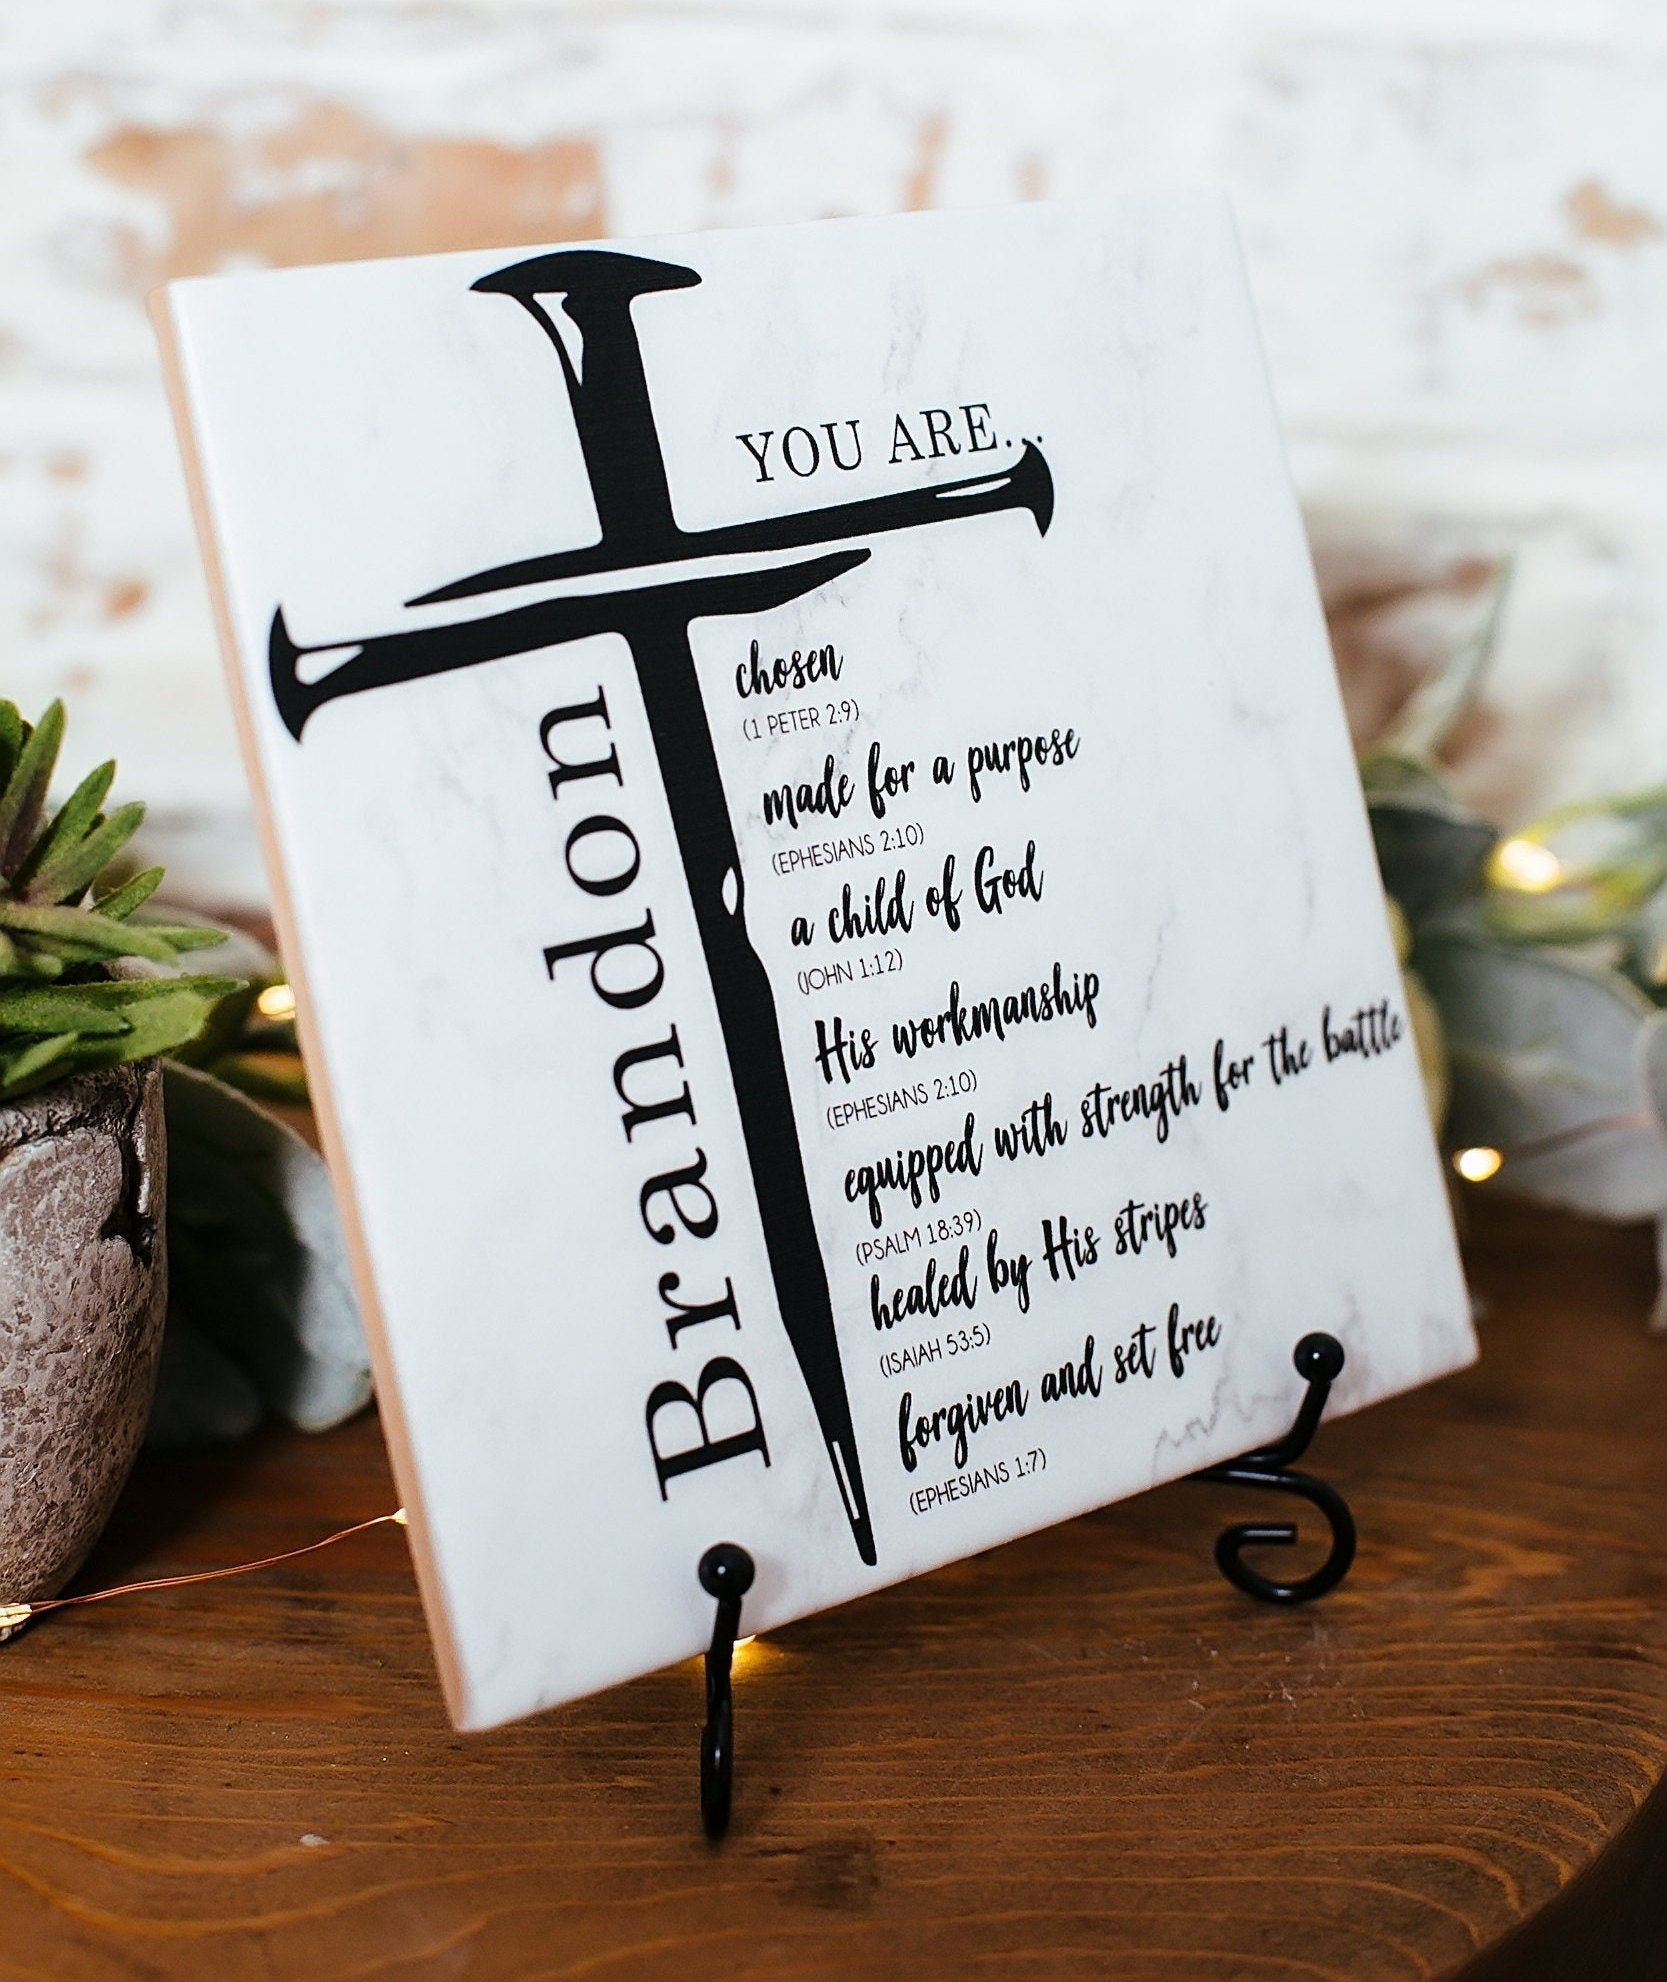 YOU ARE...
Brandon
chosen
(1 PETER 2:9)
made for a purpose
(EPHESIANS 2:10)
a child of God
(JOHN 1:12)
His workmanship
(EPHESIANS 2:10)
equipped with strength for the battle
(PSALM 18:39)
healed by His stripes
(ISAIAH 53:5)
forgiven and set free
(EPHESIANS 1:7)